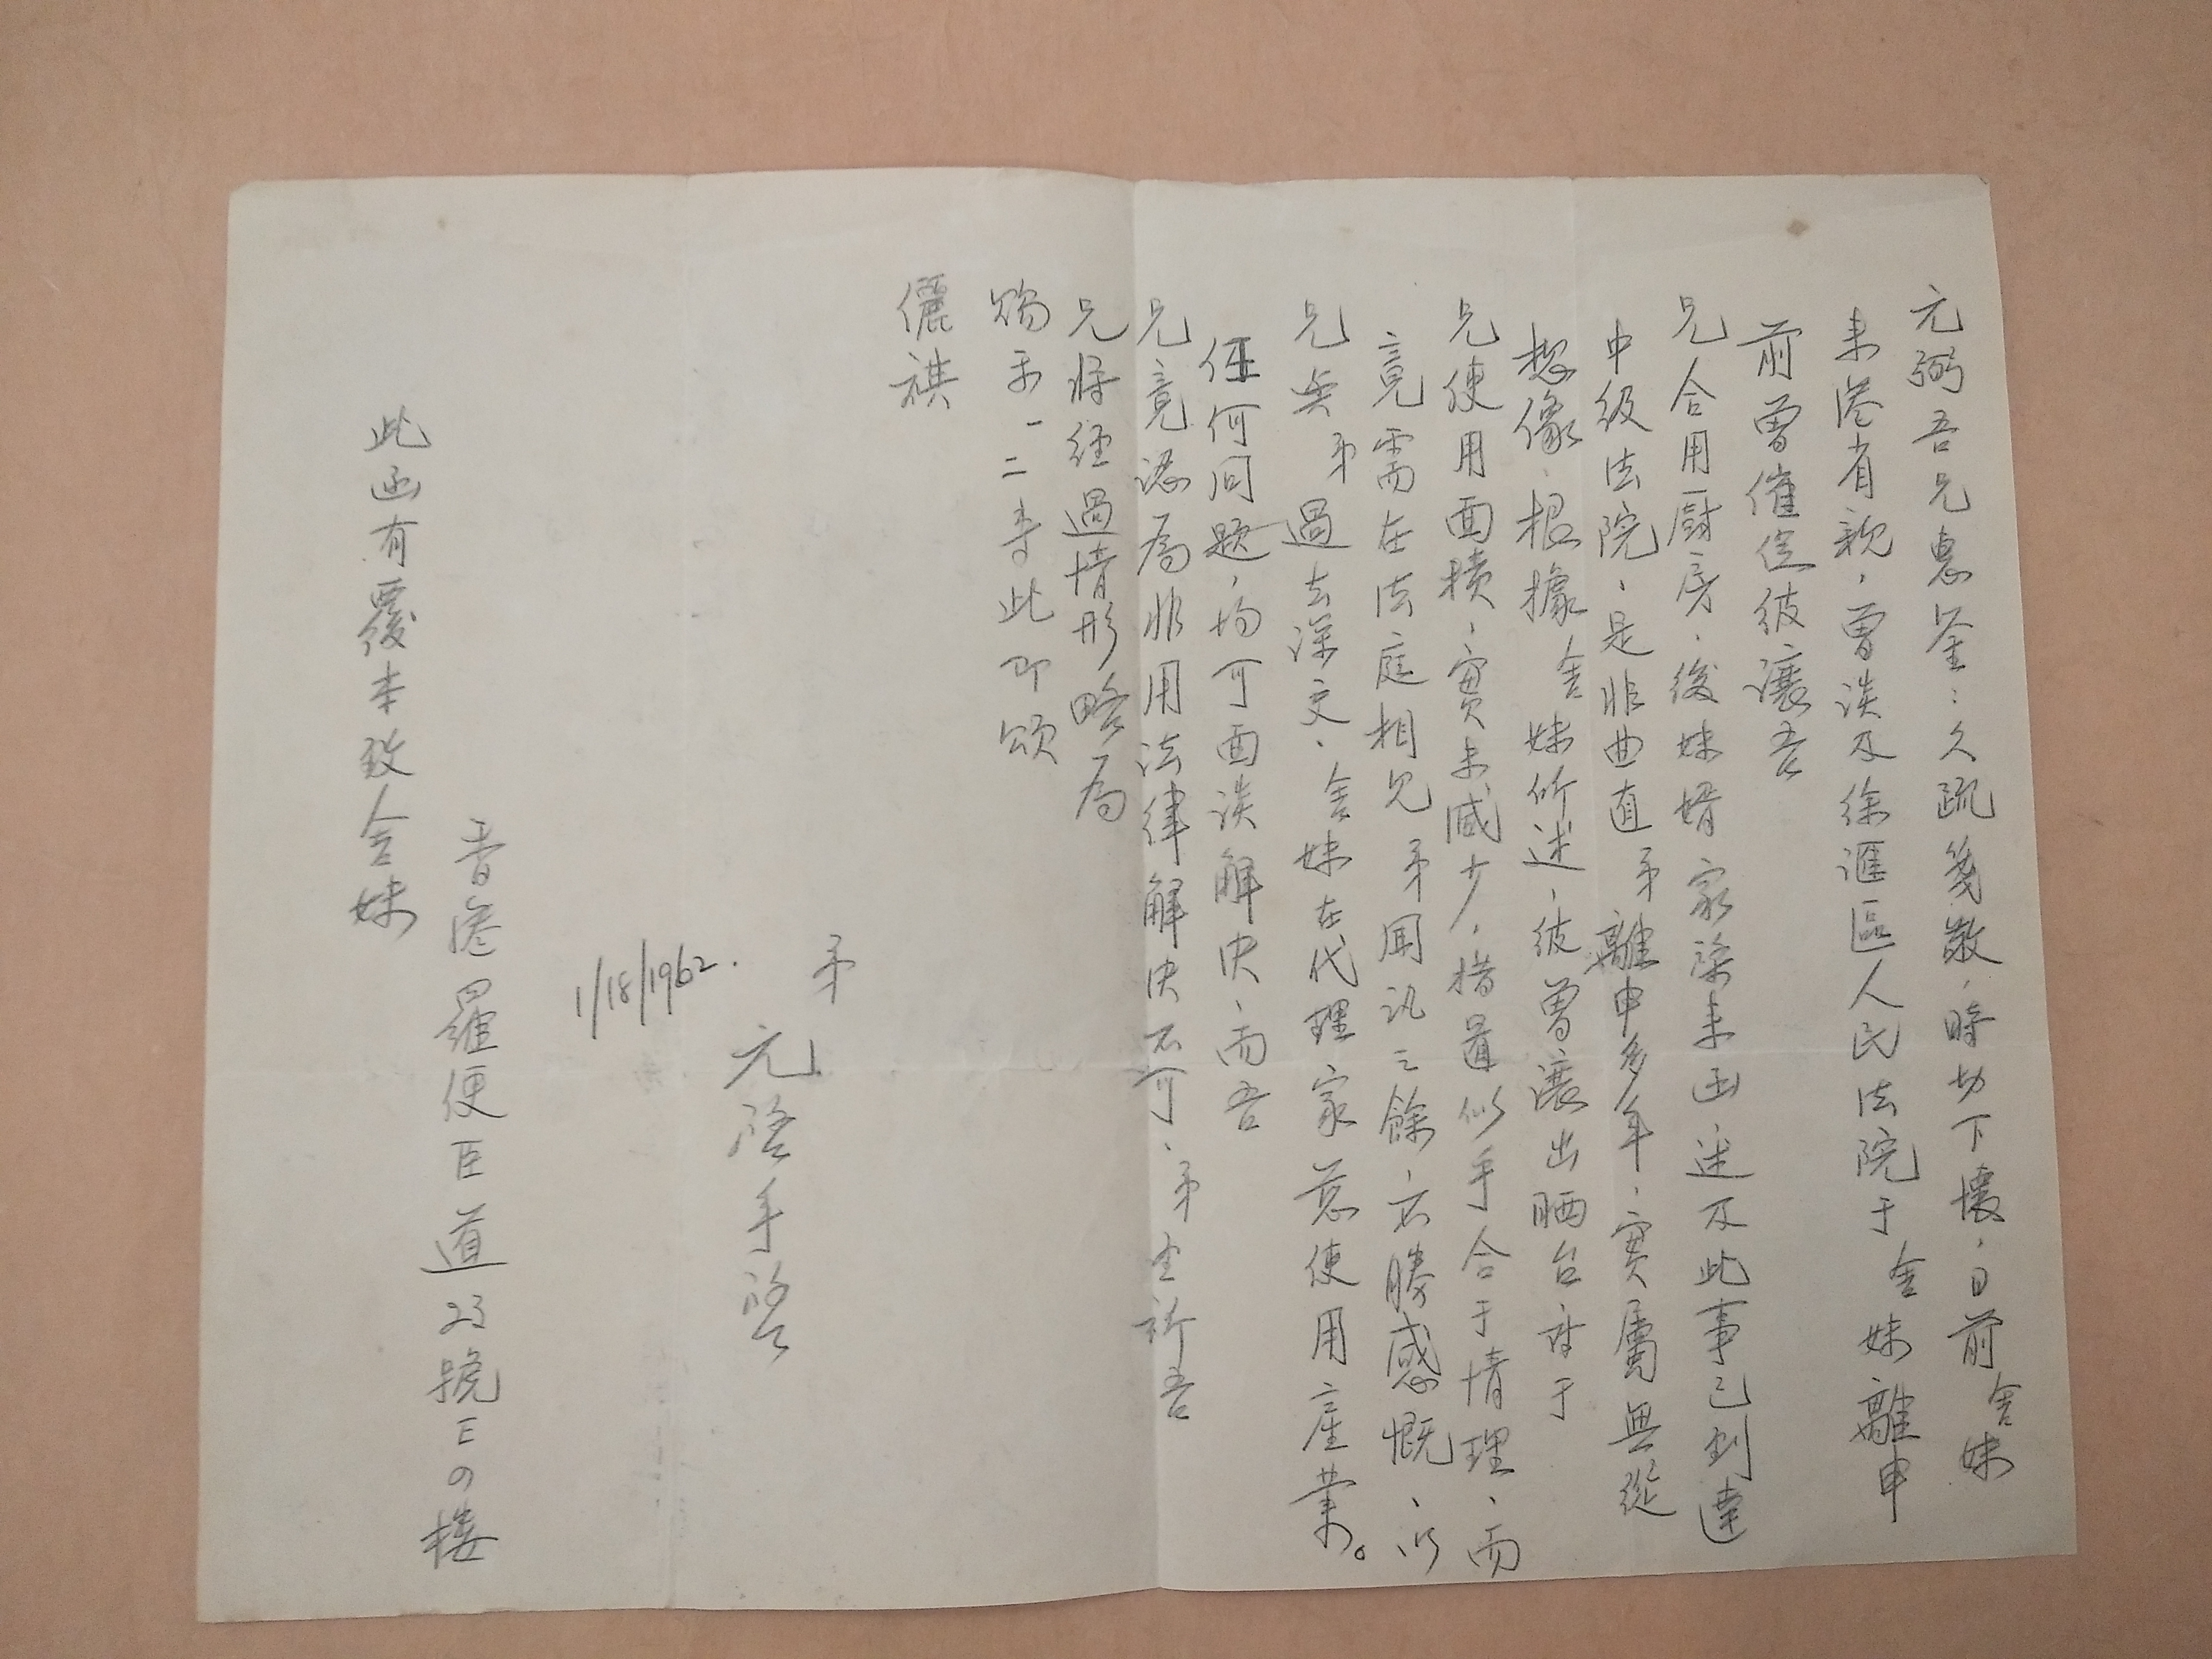 元弼吾兄惠鉴：久疏箋敬，時切下懷，日前舍妹
来港省親，曽谈及徐滙區人民法院于舍妹離申
前曽催促彼讓吾
兄合用厨房，後妹婿家樑来函述及此事已到達
中级法院，是非曲直弟離申多年，實屬無從
想像，根據舍妹所述，彼曽讓出晒台
兄使用面積，實未減少，措置似乎合于情理，而
竟需在法庭相見弟聞訊之餘，不勝感慨，以
兄與弟過去深交，舍妹在代理家慈使用產業。
任何问题，均可面谈解决，而吾
兄竟認為非用法律解决不可，弟至祈吾
兄将经過情形略為
賜示一二專此即颂
儷祺
弟
元啓手啓
1/18/1962.
香港羅便臣道23號E四楼
此函有覆本致舍妹